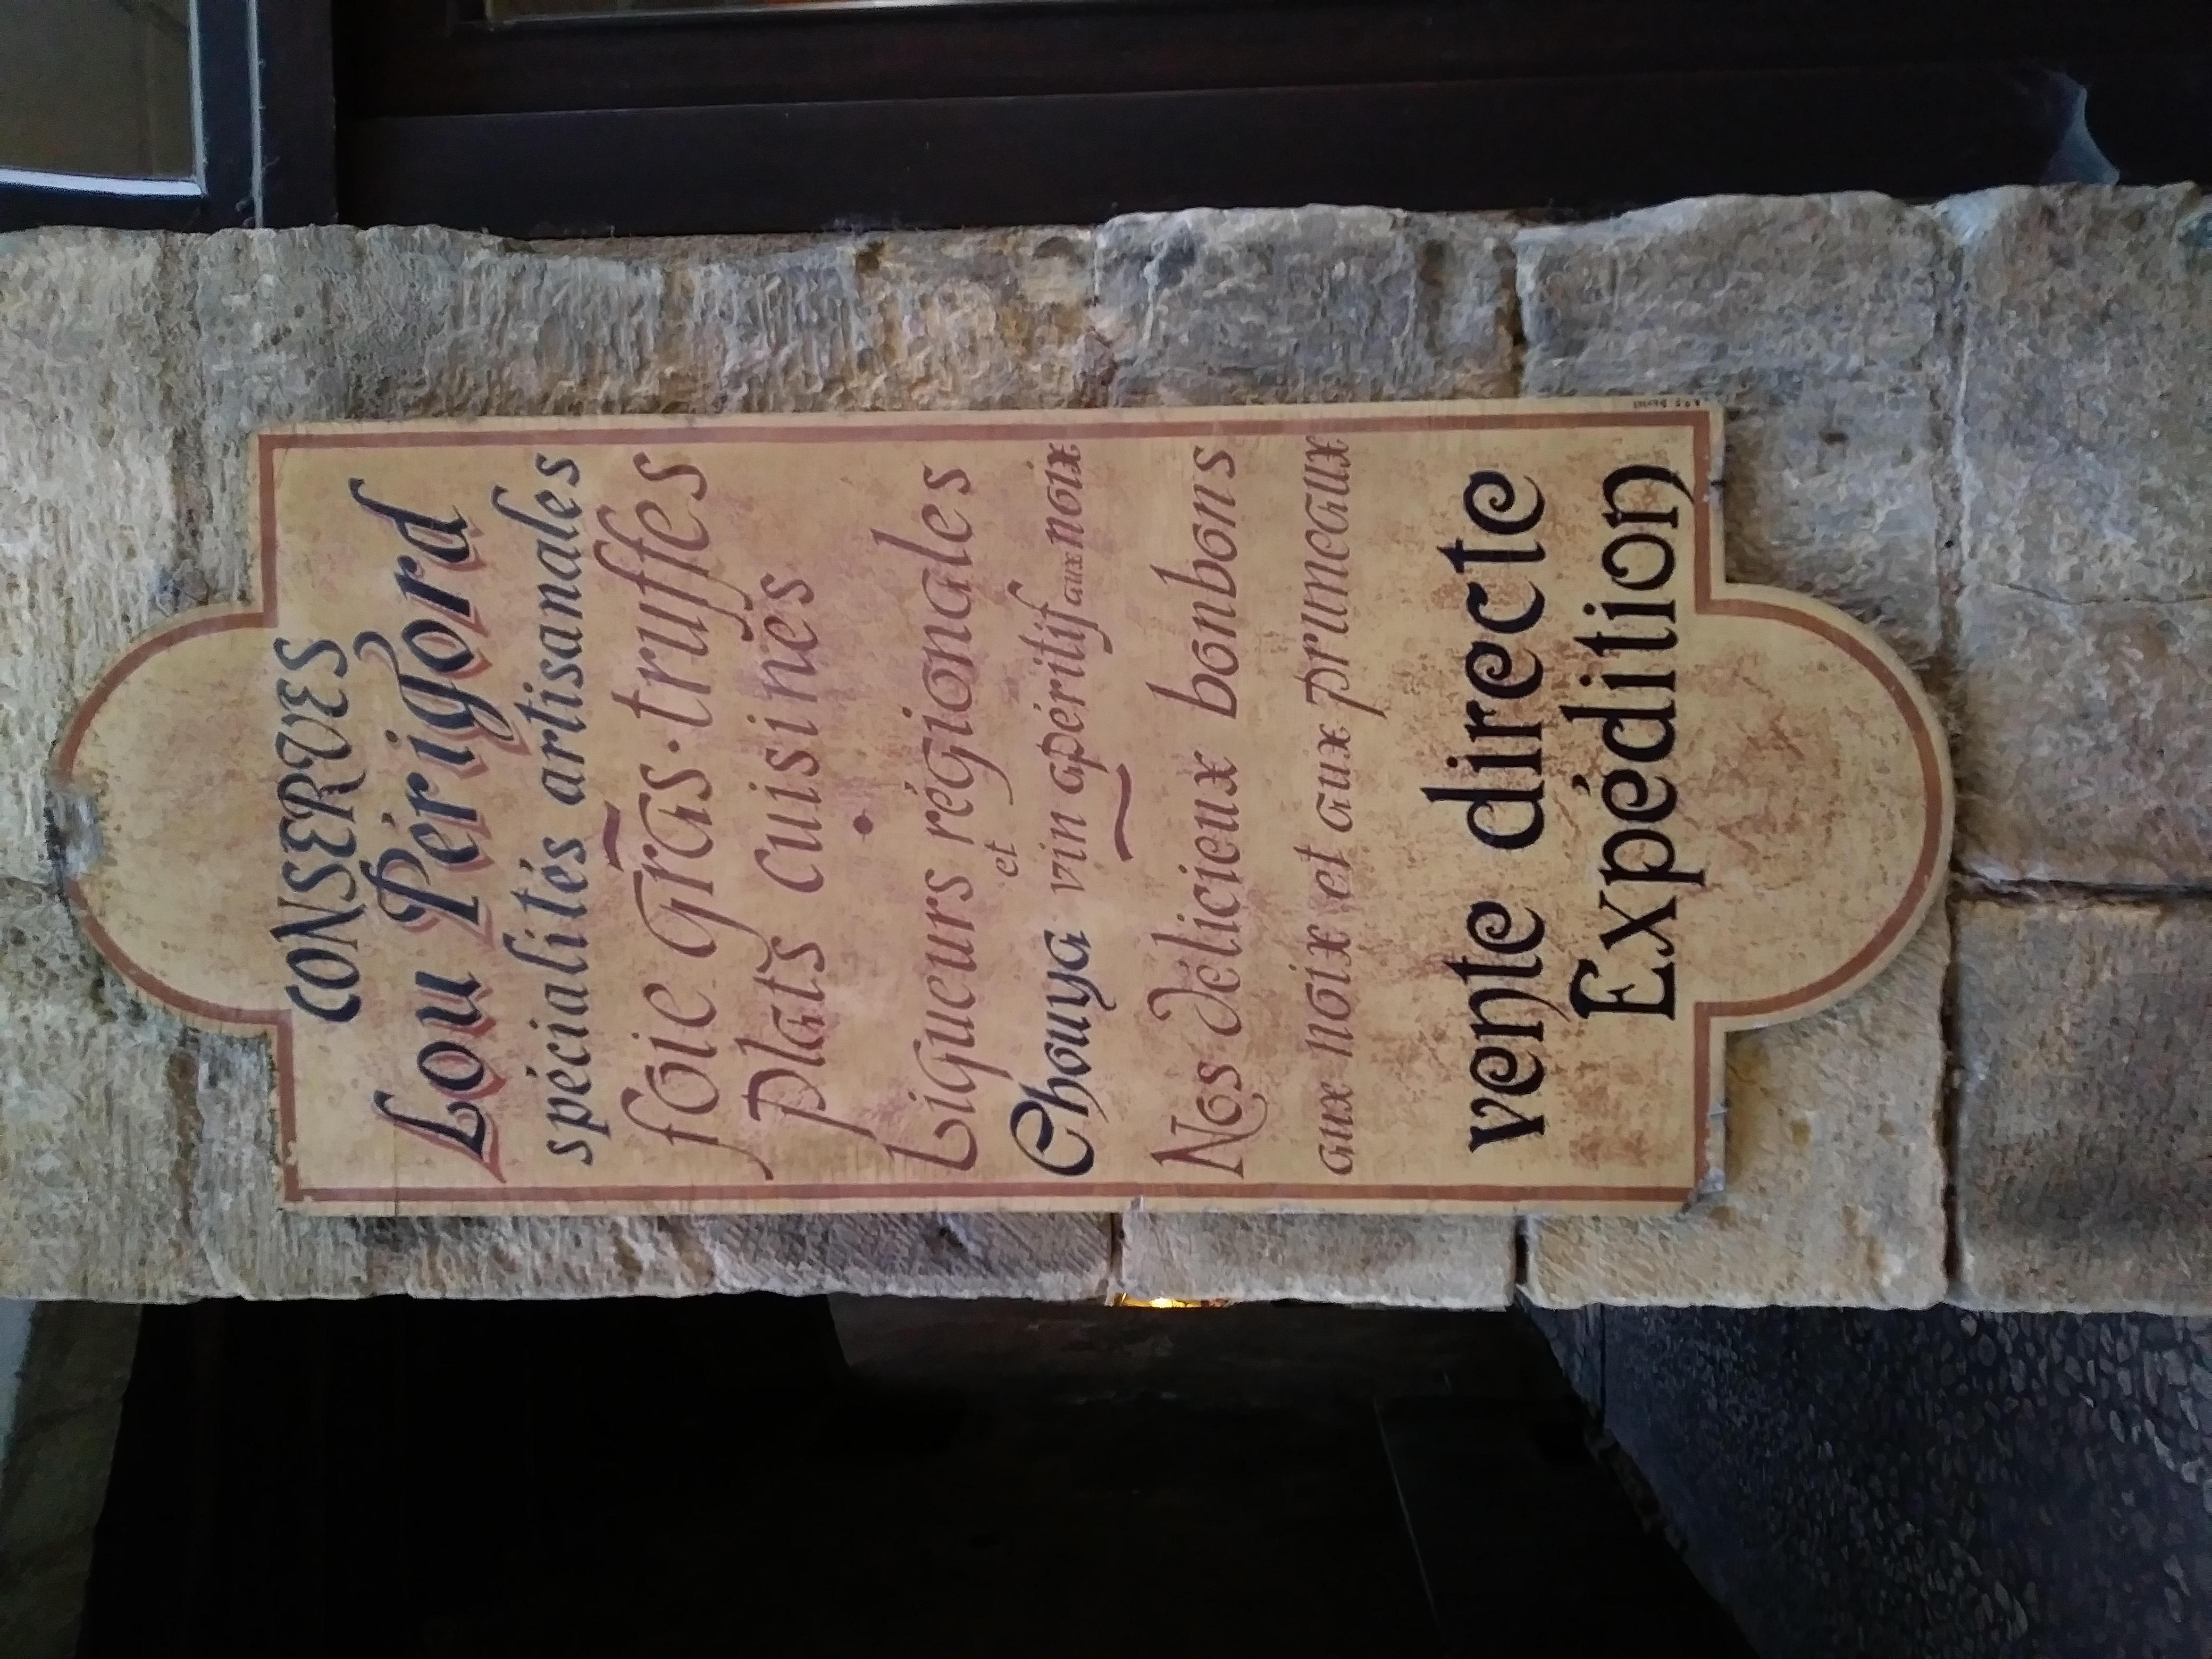 CONSERVES
Lou Périgord
spécialités artisanales
foie gras · truffes
plats cuisinés
Liqueurs régionales
et
Chouya vin apéritif aux noix
Nos délicieux bonbons
aux noix et aux pruneaux
vente directe
Expédition